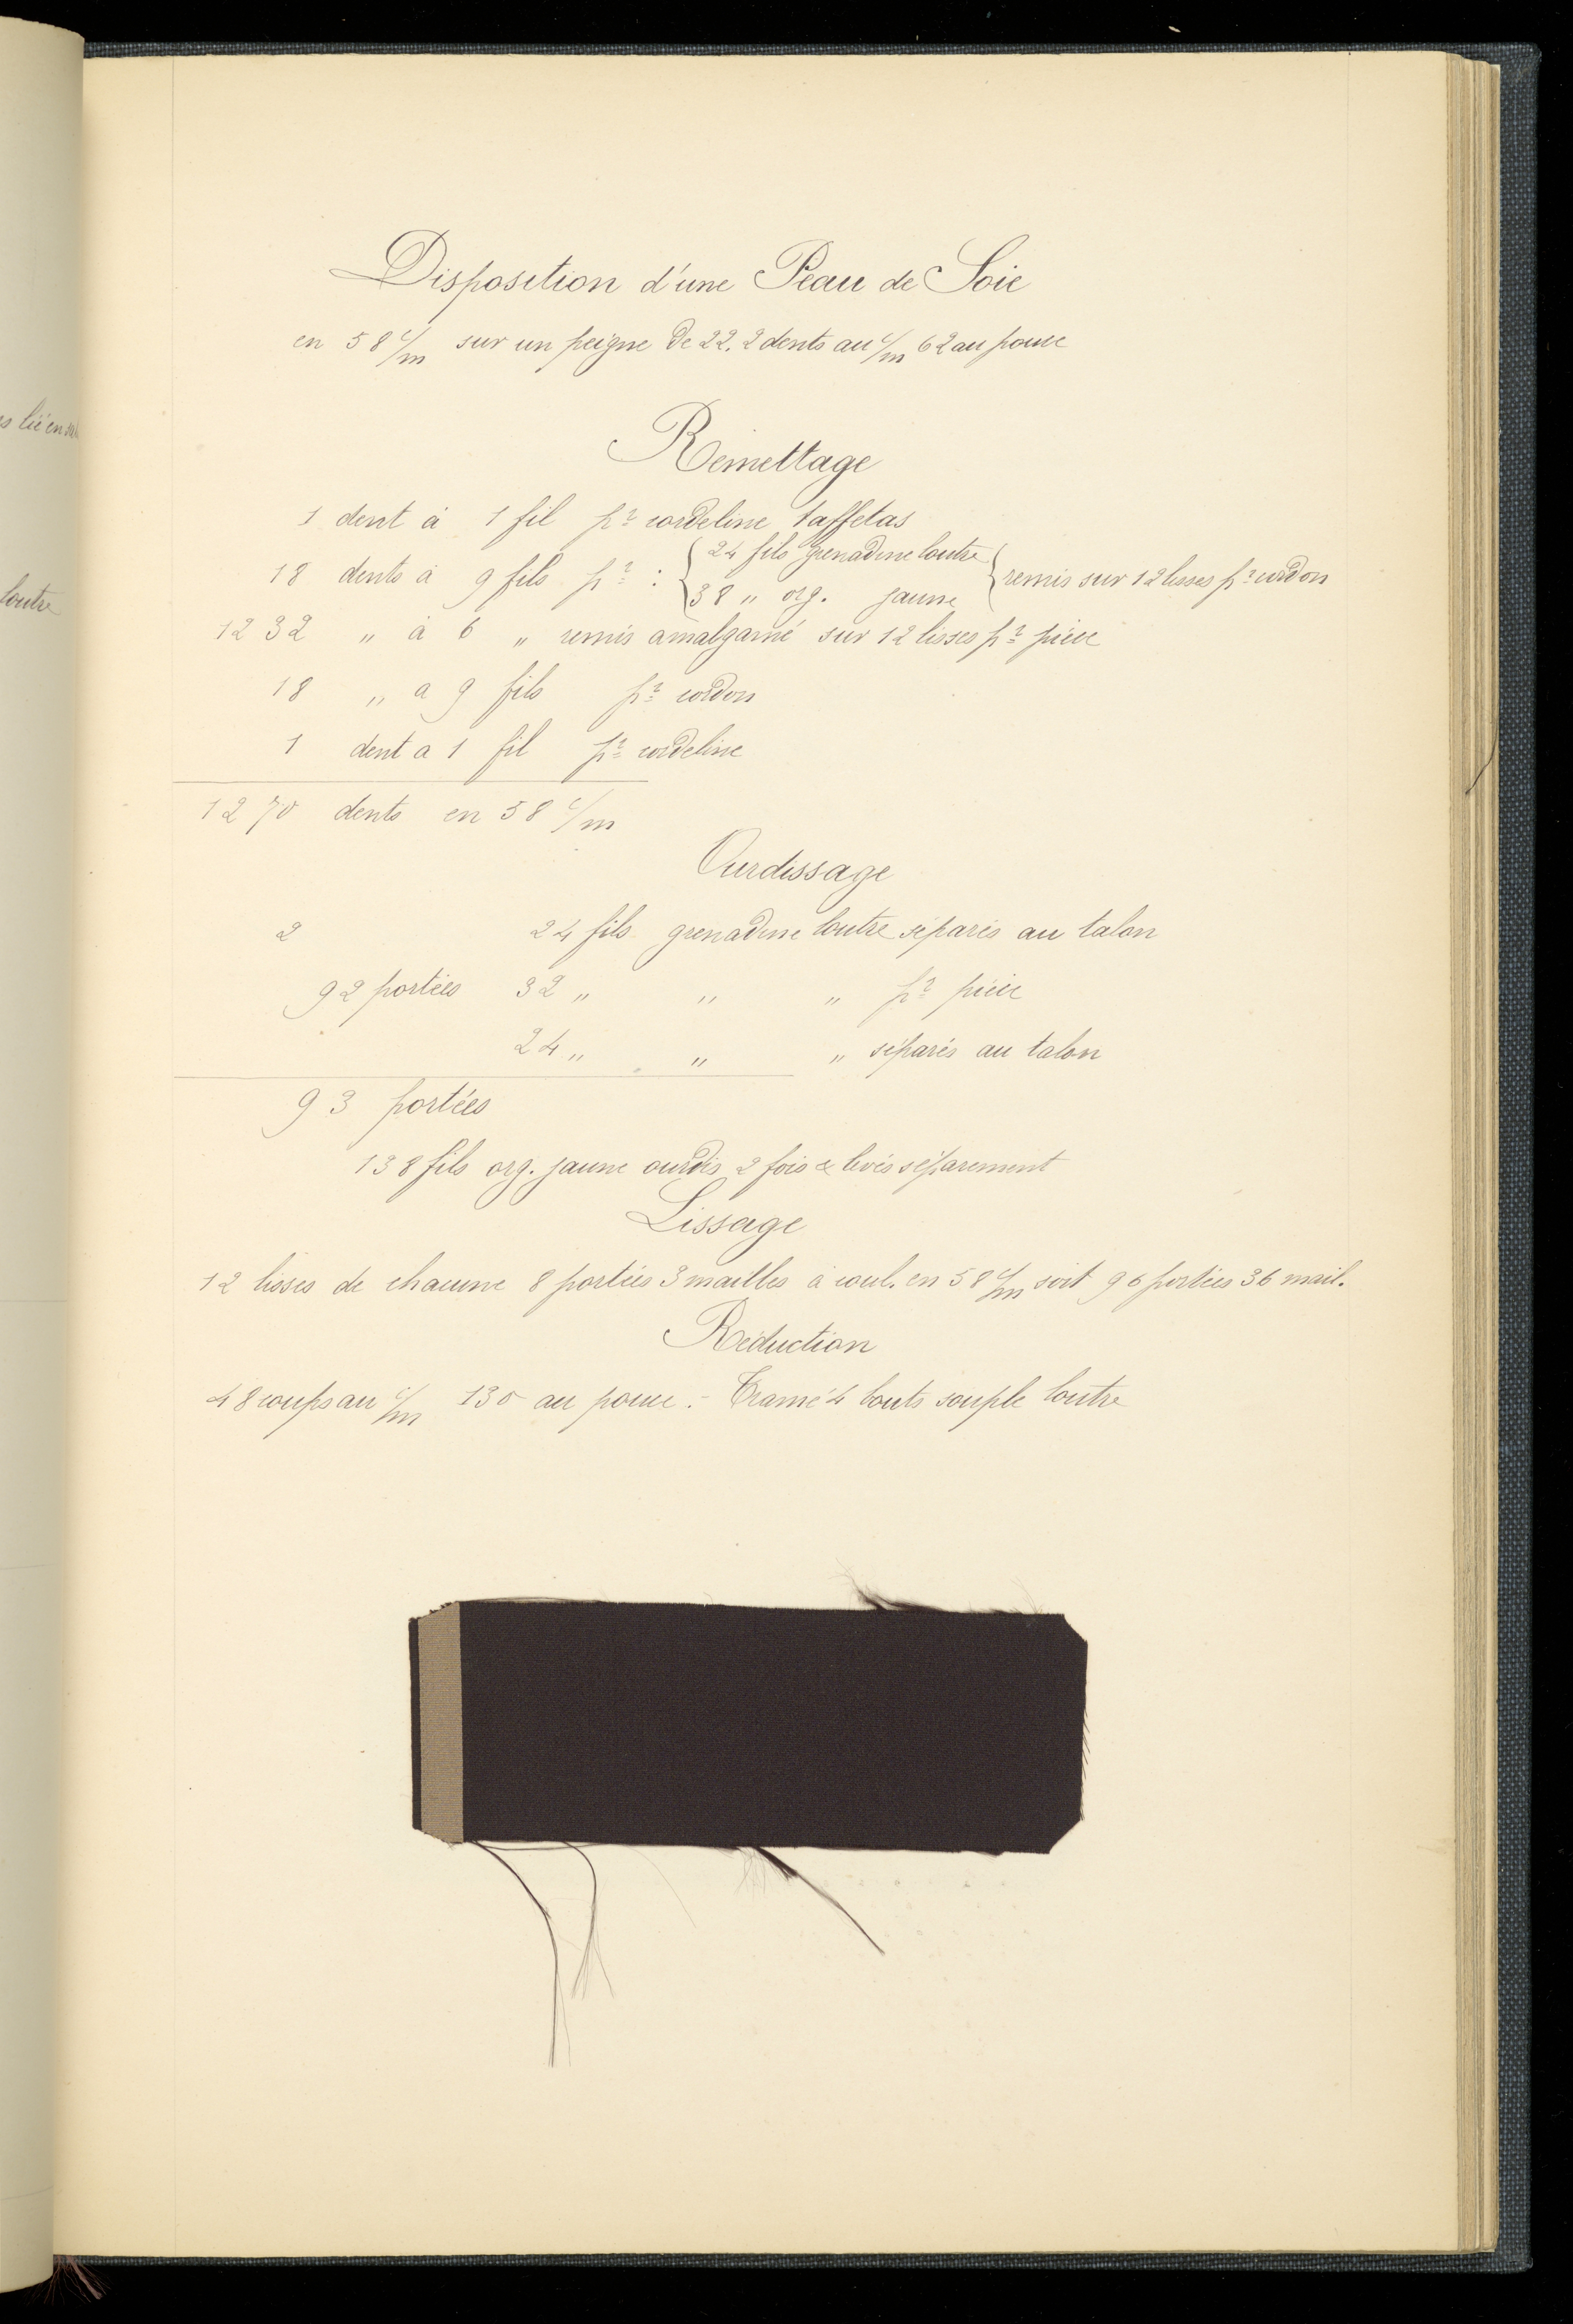 Disposition d'une Peau de Soie
en 58 c/m sur un peigne de 22.2 dents au c/m 62 au pouce
Remettage
1 dent à 1 fil pr cordeline taffetas
18 dents à 9 fils pr : { 24 fils grenadine loutre
38 " org. jaune } remis sur 12 lisses pr cordon
1232 " à 6 " remis amalgamé sur 12 lisses pr pièce
18 " a 9 fils pr cordon
1 dent a 1 fil pr cordeline
1270 dents en 58 c/m
Ourdissage
2 24 fils grenadine loutre séparés au talon
92 portées 32 " " " pr pièce
24 " " " séparés au talon
93 portées
138 fils org. jaune ourdis 2 fois & levés séparement
Lissage
12 lisses de chacune 8 portées 3 mailles à coul. en 58 c/m soit 96 portées 36 mail.
Réduction
48 coups au c/m 130 au pouce. - Tramé 4 bouts souple loutre
loutre